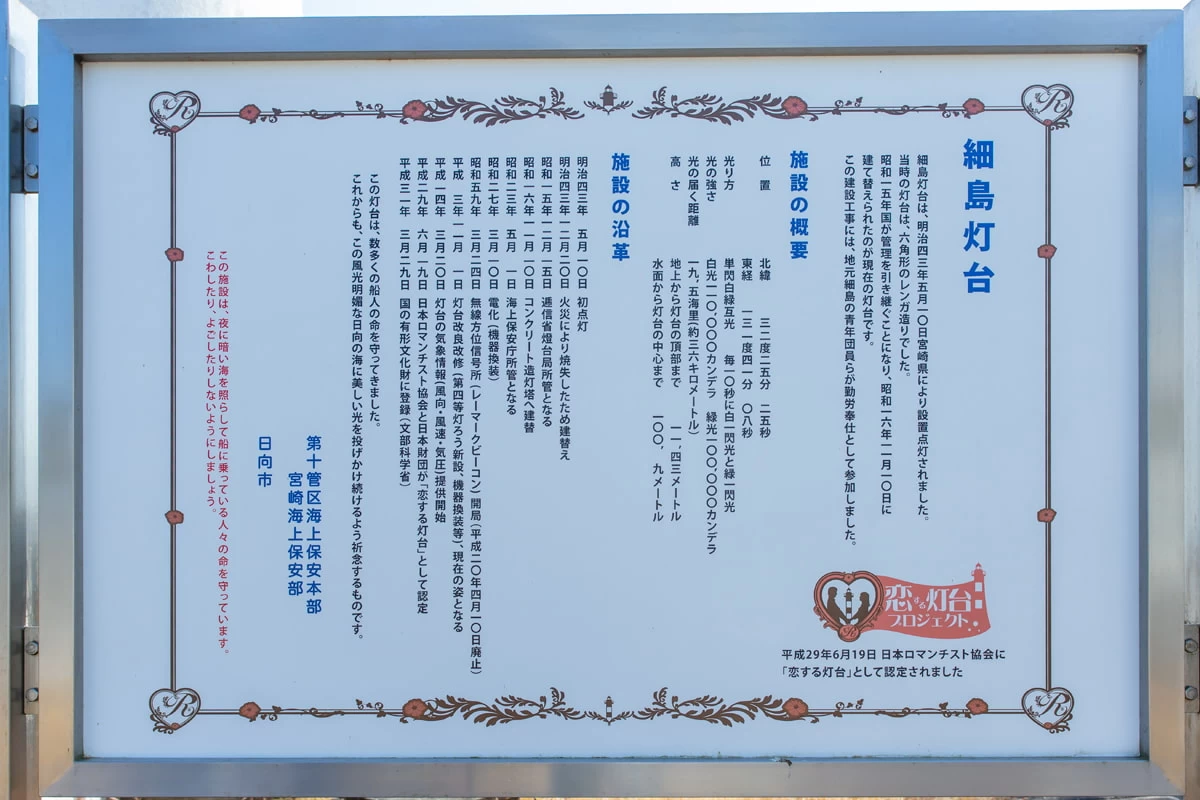 細島灯台
細島灯台は、明治四三年五月一〇日宮崎県により設置点灯されました。
当時の灯台は、六角形のレンガ造りでした。
昭和一五年国が管理を引き継ぐことになり、昭和一六年一一月一〇日に
建て替えられたのが現在の灯台です。
この建設工事には、地元細島の青年団員らが勤労奉仕として参加しました。
施設の概要
位置 北緯 三二度二五分 二五秒
東経 一三一度四一分 〇八秒
光り方 単閃白緑互光 毎一〇秒に白一閃光と緑一閃光
光の強さ 白光一一〇,〇〇〇カンデラ 緑光一〇〇,〇〇〇カンデラ
光の届く距離 一九.五海里(約三六キロメートル)
高さ 地上から灯台の頂部まで 一一.四三メートル
水面から灯台の中心まで 一〇〇.九メートル
施設の沿革
明治四三年 五月一〇日 初点灯
明治四三年一二月二〇日 火災により焼失したため建替え
昭和一五年一二月一五日 逓信省燈台局所管となる
昭和一六年一一月一〇日 コンクリート造灯塔へ建替
昭和二三年 五月 一日 海上保安庁所管となる
昭和二七年 三月一〇日 電化(機器換装)
昭和五九年 三月二四日 無線方位信号所(レーマークビーコン)開局(平成二〇年四月一〇日廃止)
平成 三年一一月 一日 灯台改良改修(第四等灯ろう新設、機器換装等)、現在の姿となる
平成一四年 三月二〇日 灯台の気象情報(風向・風速・気圧)提供開始
平成二九年 六月一九日 日本ロマンチスト協会と日本財団が「恋する灯台」として認定
平成三一年 三月二九日 国の有形文化財に登録(文部科学省)
この灯台は、数多くの船人の命を守ってきました。
これからも、この風光明媚な日向の海に美しい光を投げかけ続けるよう祈念するものです。
第十管区海上保安本部
宮崎海上保安部
日向市
この施設は、夜に暗い海を照らして船に乗っている人々の命を守っています。
こわしたり、よごしたりしないようにしましょう。
恋する灯台
プロジェクト
平成29年6月19日 日本ロマンチスト協会に
「恋する灯台」として認定されました
R
R
R
R
R